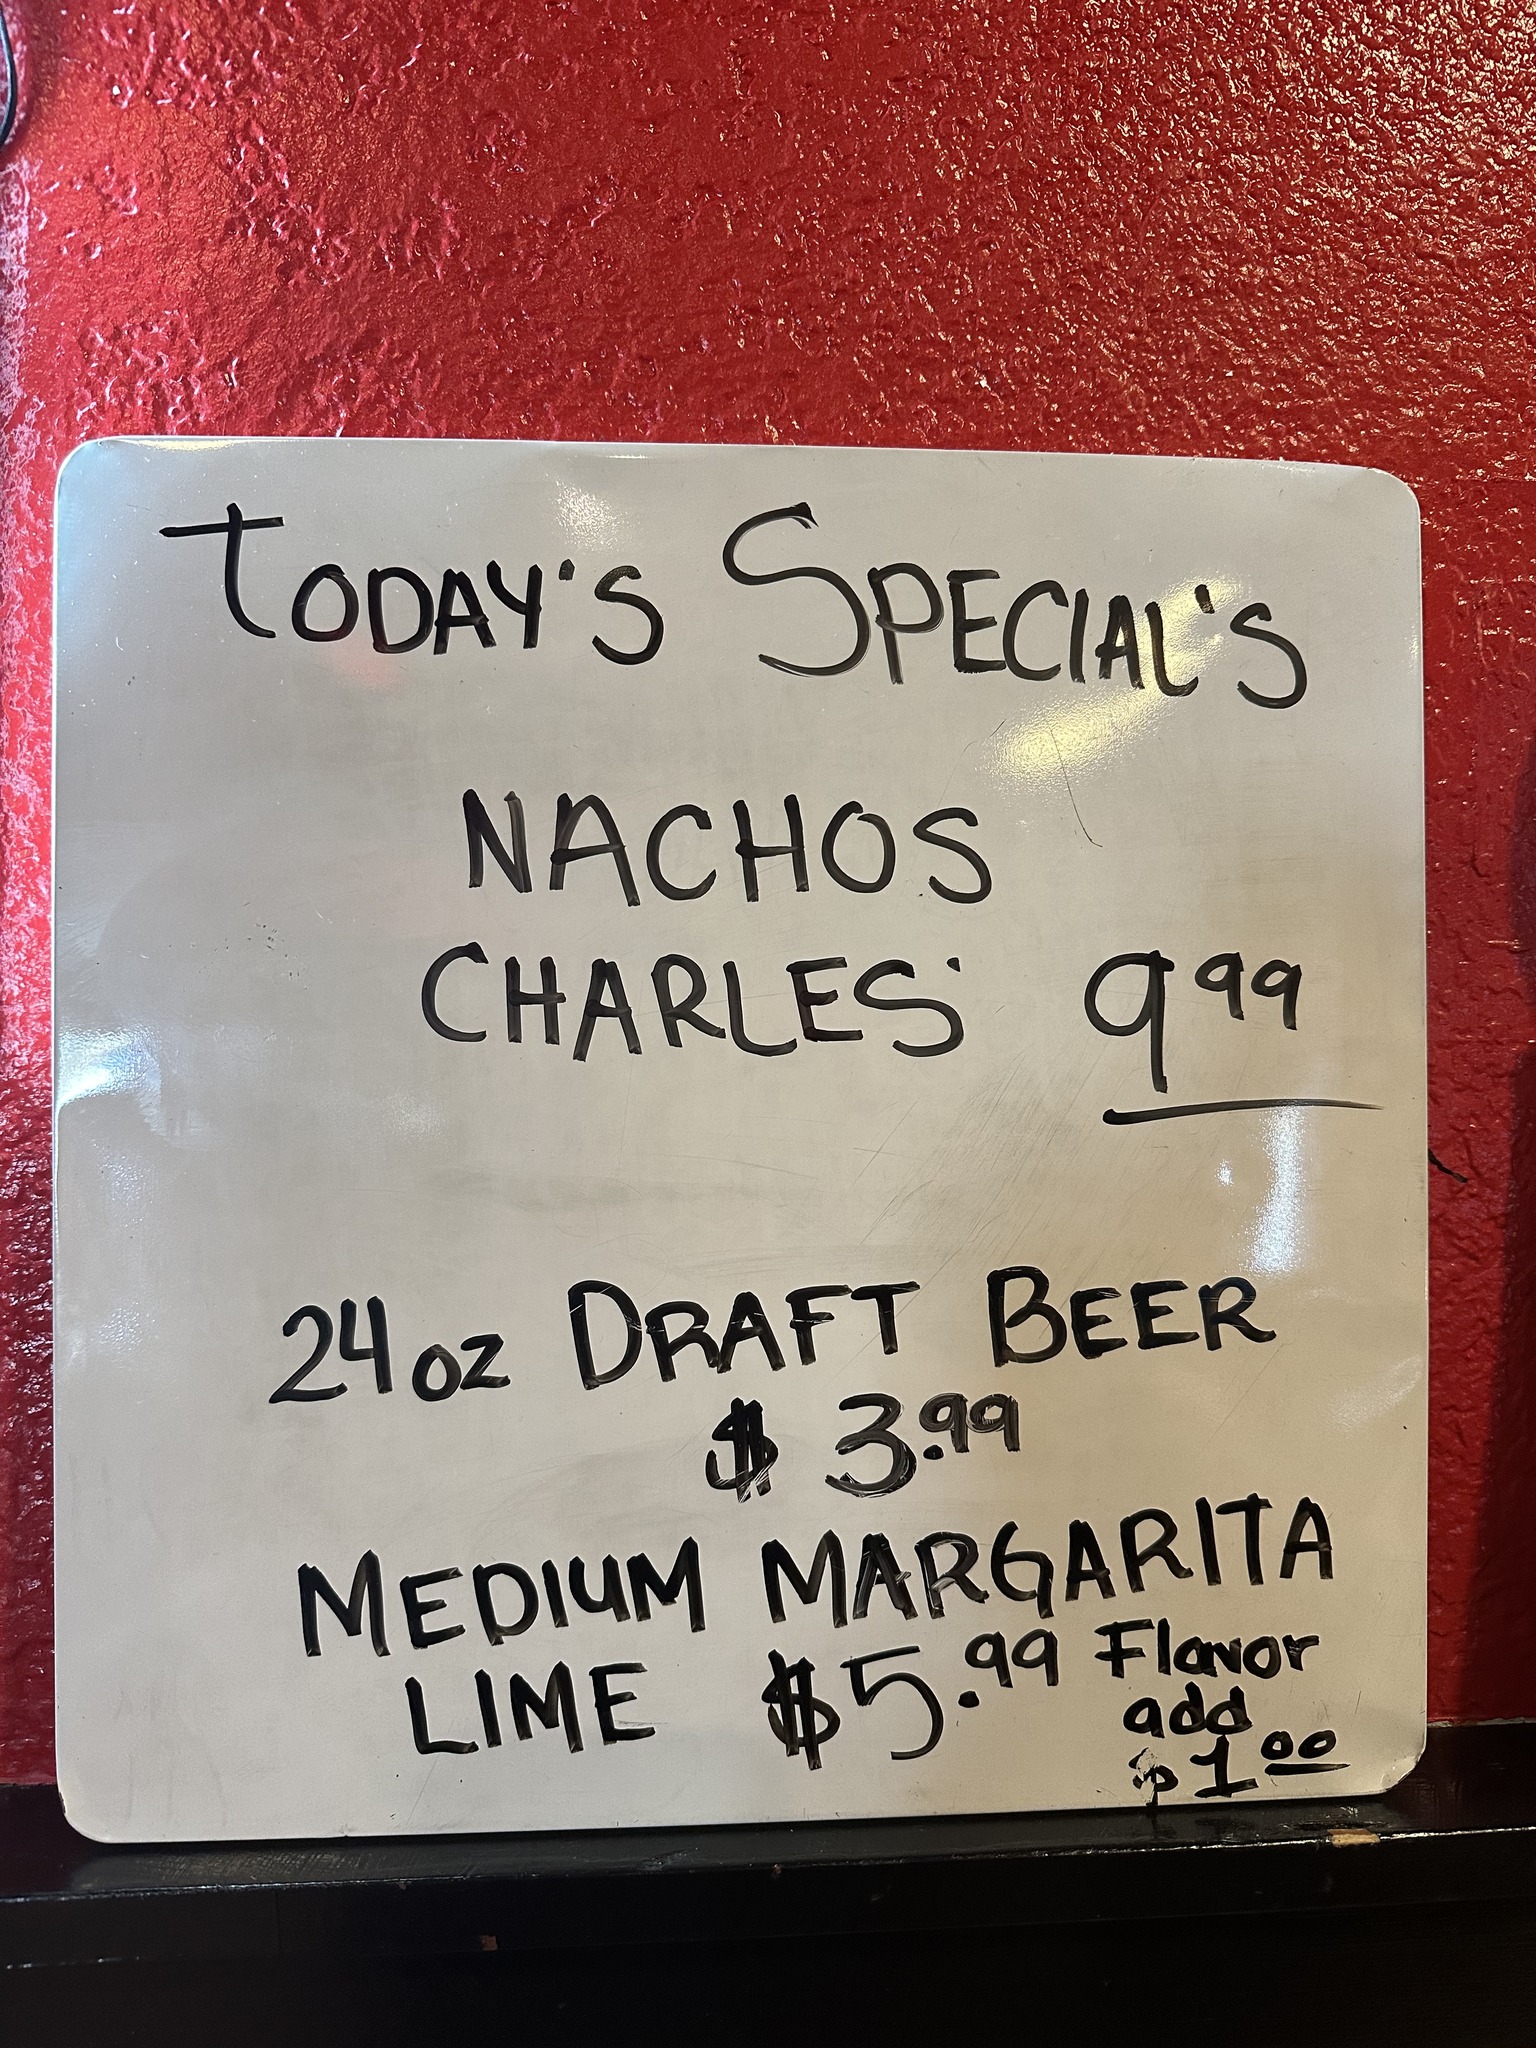 TODAY'S SPECIAL'S
NACHOS
CHARLES' 9 99
24oz DRAFT BEER
$ 3.99
MEDIUM MARGARITA
LIME $5.99 Flavor
add
$1 00